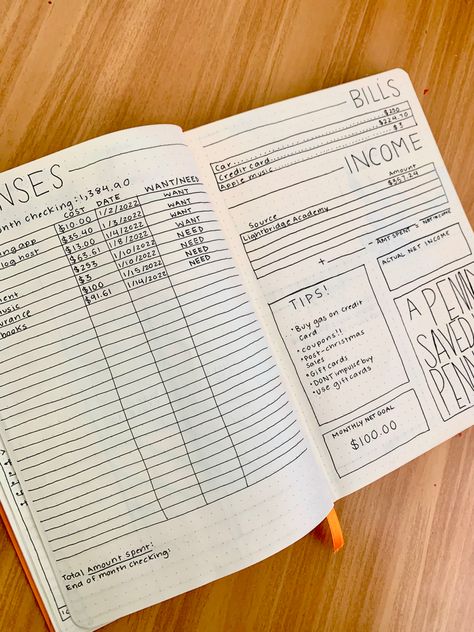 NSES
onth checking: 1,384.90
COST DATE WANT/NEED
ing app $10.00 1/2/2022 WANT
log host $35.40 1/3/2022 WANT
$13.00 1/4/2022 WANT
$63.61 1/8/2022 WANT
$253 1/10/2022 NEED
ment $3 1/10/2022 NEED
usic $100 1/15/2022 NEED
urance $91.61 1/14/2022 NEED
books
Total Amount spent:
End of month checking:
BILLS
Car $250
Credit card $224.70
Apple music $3
INCOME
Source Amount
Lightbridge Academy $557.24
+ - AMT SPENT = NET INCOME
ACTUAL NET INCOME
TIPS!
• Buy gas on credit card
• coupons!!
• Post-christmas sales
• Gift cards
• DONT impulse buy
• Use gift cards
MONTHLY NET GOAL
$100.00
A PENN
SAVED
PENN